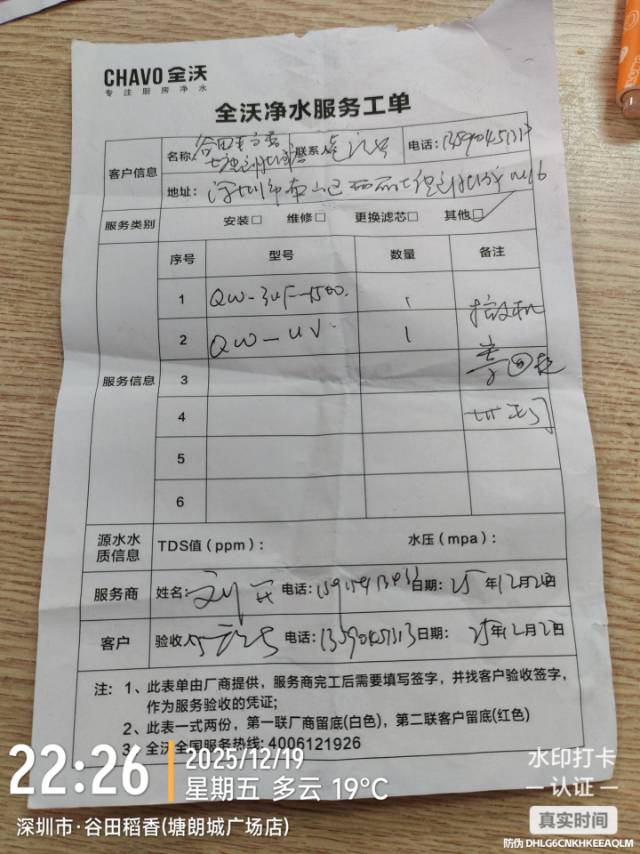 CHAVO 全沃
专注厨房净水
全沃净水服务工单
客户信息
名称: 谷田 联系人 电话: 13590457313
地址: 深圳市南山区西丽
服务类别 安装□ 维修□ 更换滤芯□ 其他□
服务信息
序号 型号 数量 备注
1 QW-3UF-1500. 1
2 QW-UV. 1
3
4
5
6
源水水质信息 TDS值(ppm): 水压(mpa):
服务商 姓名: 电话: 日期: 25年12月20日
客户 验收 电话: 13590457313 日期: 25年12月20日
注: 1、此表单由厂商提供，服务商完工后需要填写签字，并找客户验收签字，
作为服务验收的凭证;
2、此表一式两份，第一联厂商留底(白色)，第二联客户留底(红色)
3、全沃全国服务热线: 4006121926
22:26
2025/12/19
星期五 多云 19°C
深圳市·谷田稻香(塘朗城广场店)
水印打卡
认证
真实时间
防伪 DHLG6CNKHKEEAQLM